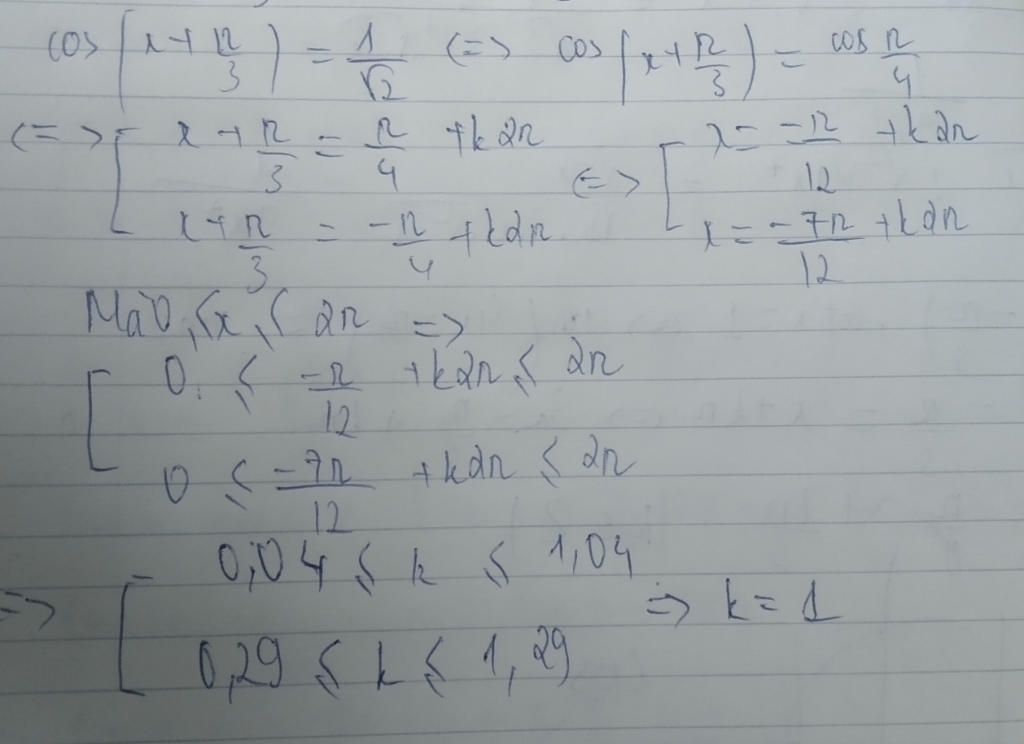 cos(x + π/3) = 1/√2 <=> cos(x + π/3) = cos π/4
<=> [ x + π/3 = π/4 + k2π <=> [ x = -π/12 + k2π
x + π/3 = -π/4 + k2π x = -7π/12 + k2π
Mà 0 ≤ x ≤ 2π =>
[ 0 ≤ -π/12 + k2π ≤ 2π
0 ≤ -7π/12 + k2π ≤ 2π
=> [ 0,04 ≤ k ≤ 1,04 => k = 1
0,29 ≤ k ≤ 1,29